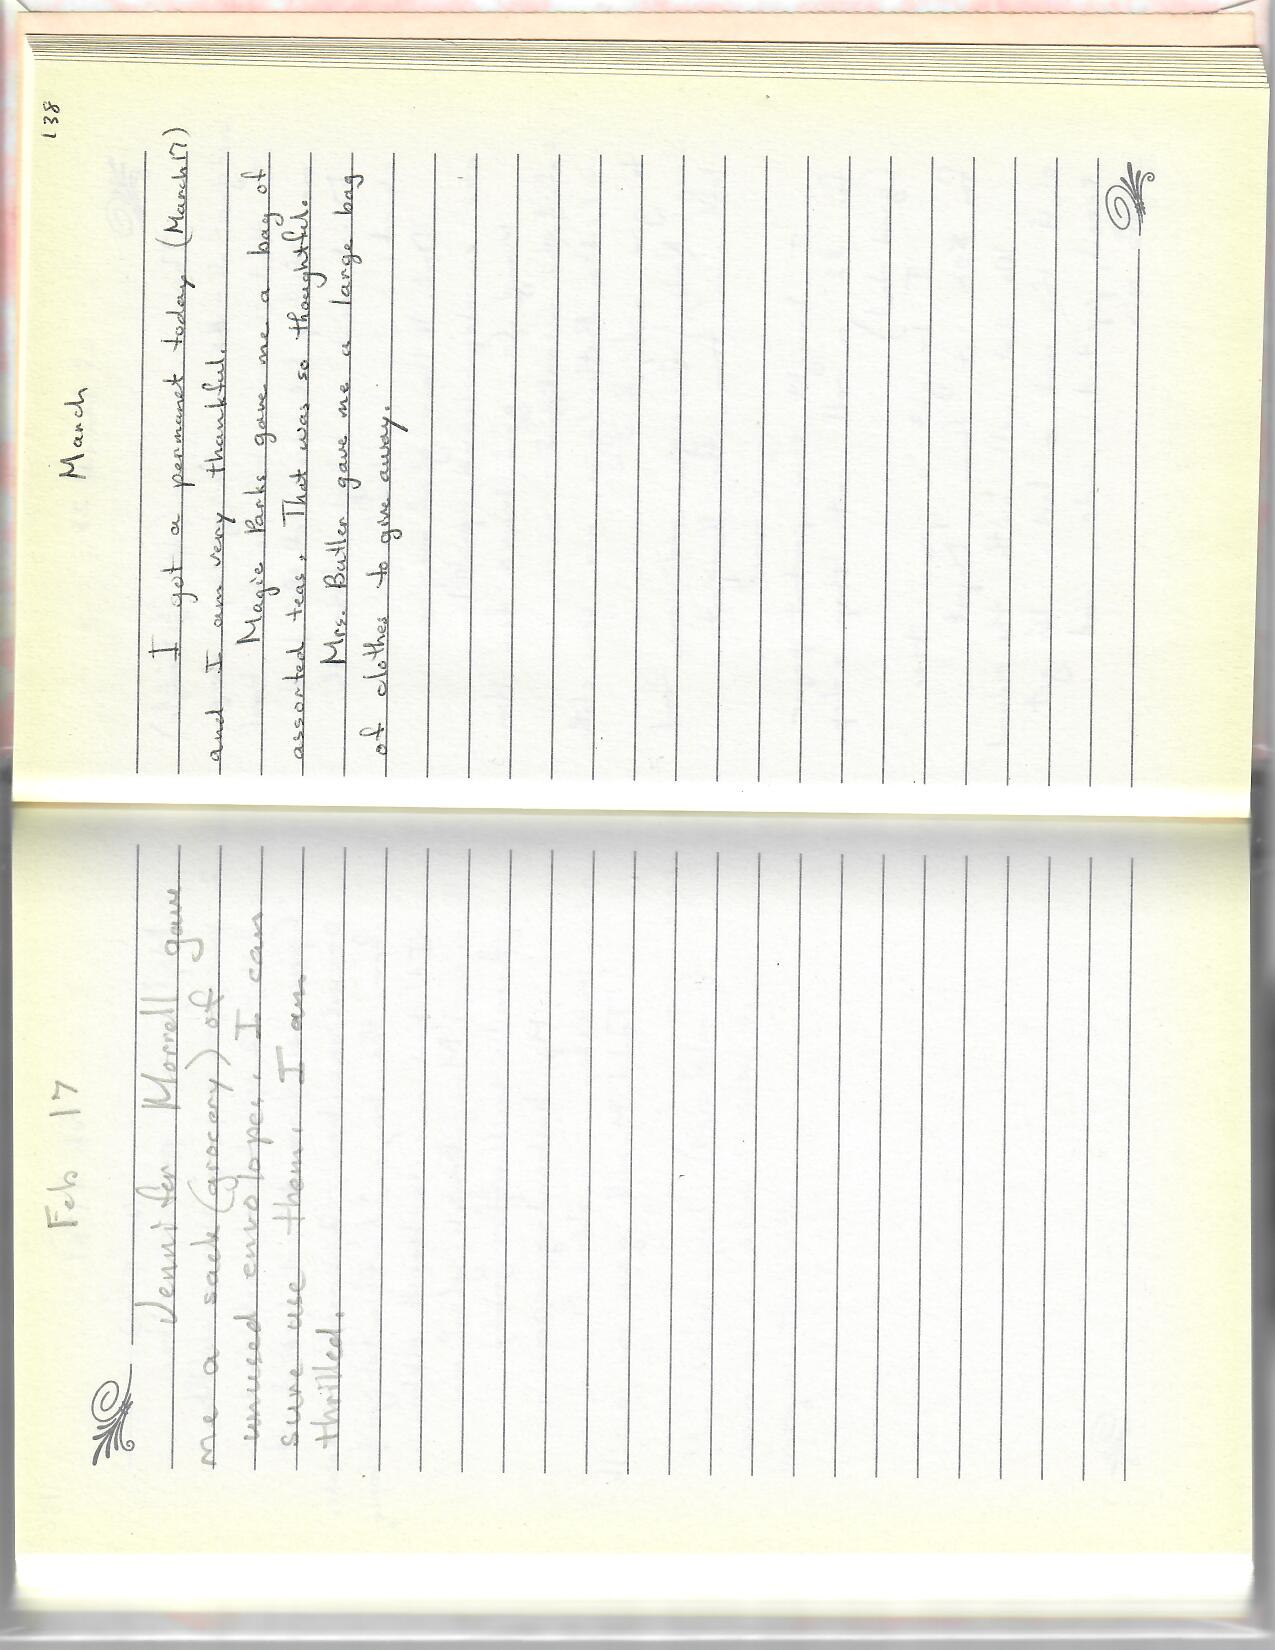 Feb 17
Jennifer Morrell gave
me a sack (grocery) of
unused envolopes. I can
sure use them. I am
thrilled.
138
March
I got a permanet today (March 17)
and I am very thankful.
Magic Parks gave me a bag of
assorted teas. That was so thoughtful.
Mrs. Butler gave me a large bag
of clothes to give away.